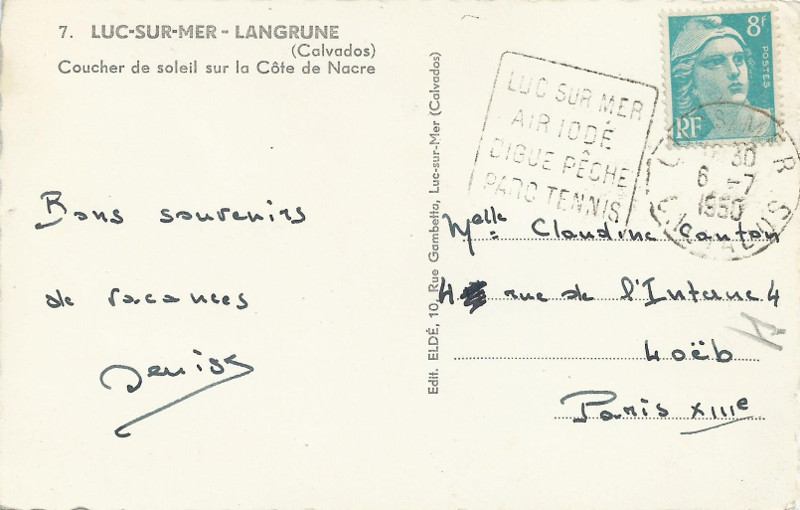 7. LUC-SUR-MER - LANGRUNE
(Calvados)
Coucher de soleil sur la Côte de Nacre
Bons souvenirs
de vacances
Denise
Edit. ELDÉ, 10, Rue Gambetta, Luc-sur-Mer (Calvados)
LUC SUR MER
AIR IODÉ
DIGUE PÊCHE
PARC TENNIS
8f
POSTES
RF
30
6 -7
1950
LUC S MER
CALVADOS
Melle Claudine Canton
4 rue de l'Interne 4
Loëb
Paris XIIIe